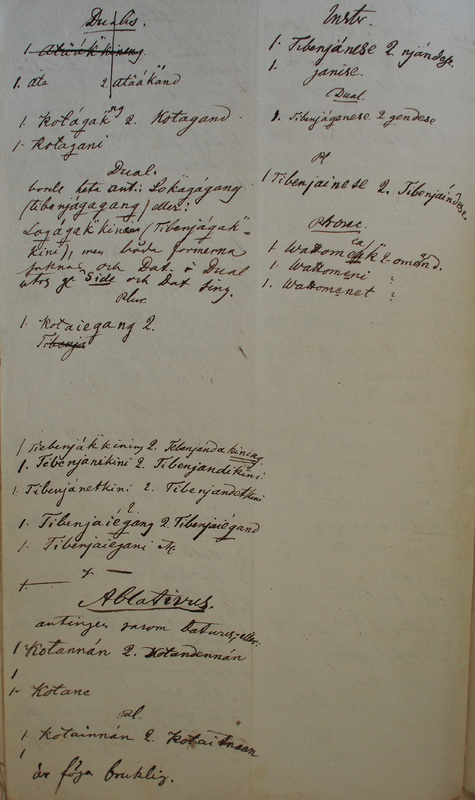 Dualis.
1. Atäák kineng
1. äta 2 atäákand
1. Kotágák ng 2. Kotagand
1. Kotagani
Dual.
borde heta ant.: Lokágágang
(tibenjágagang) eller:
Logágák kinem (Tibenjágák-
kini), men båda formerna
saknas och Dat. i Dual
och Dat sing.
Plur.
1. Kotaiegang 2.
Tibenja
1 Tiebenják kining 2. Tebenjánda kining
1. Tebenjanikini 2. Tibenjandikini
1. Tibenjánetkini 2. Tibenjandetkini
2.
1. Tibenjaiégang 2. Tibenjaiégand
1. Tibenjaiegani
Ablativus.
antingen sasom Dativus, eller:
1 Kotannán 2. Kotandennán
1
1. Kotane
Pl.
1. Kotainnán 2. Kotaitnaan
1
är föga bruklig.
Instr.
1. Tibenjánese 2. njándese.
1. janise.
Dual.
1. Tibenjágenese. 2 gendese
Pl
1 Tibenjainese 2. Tibenjaíndese.
Prosec.
1. Wattomen 2. omend.
1. Wattomeni 2
1. Wattomenet 2